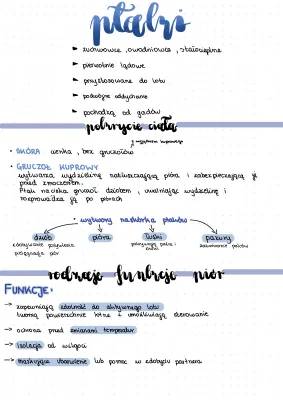 ptaki
► żuchwowce, owodniowce, stałocieplne
► pierwotnie lądowe
► przystosowane do lotu
► podwójne oddychanie
► pochodzą od gadów
pokrycie ciała
z wyjątkiem kuprowego
• SKÓRA cienka, bez gruczołów
• GRUCZOŁ KUPROWY
wytwarza wydzielinę natłuszczającą pióra i zabezpieczającą je
przed zmoczeniem.
Ptak naciska gruczoł dziobem, uwalniając wydzielinę i
rozprowadza ją po piórach
• wytwory naskórka ptaków
dziób pióra łuski pazury
zdobywanie pokarmu
pielęgnacja piór
rodzaje funkcje piór
FUNKCJE:
→ zapewniają zdolność do aktywnego lotu
tworzą powierzchnie lotne i umożliwiają sterowanie
→ ochrona przed zmianami temperatur
→ izolacja od wilgoci
→ maskujące ubarwienie lub pomoc w zdobyciu partnera